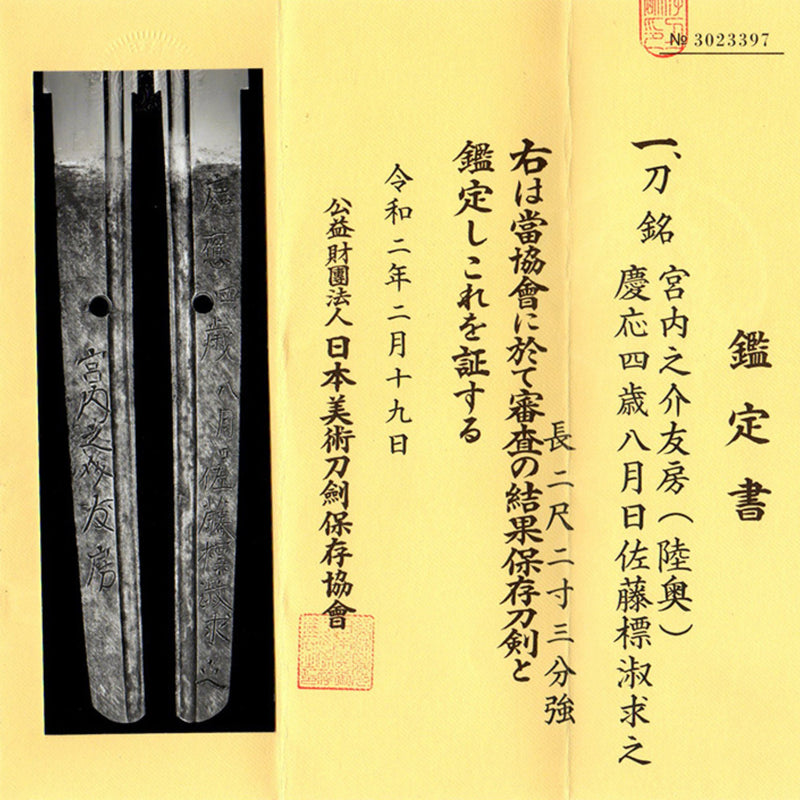 № 3023397
鑑定書
一、刀 銘 宮内之介友房(陸奥)
慶応四歳八月日佐藤標淑求之
長二尺二寸三分強
右は當協會に於て審査の結果保存刀剣と
鑑定しこれを証する
令和二年二月十九日
公益財團法人日本美術刀劍保存協會
慶應四歳八月日佐藤標淑求之
宮内之介友房